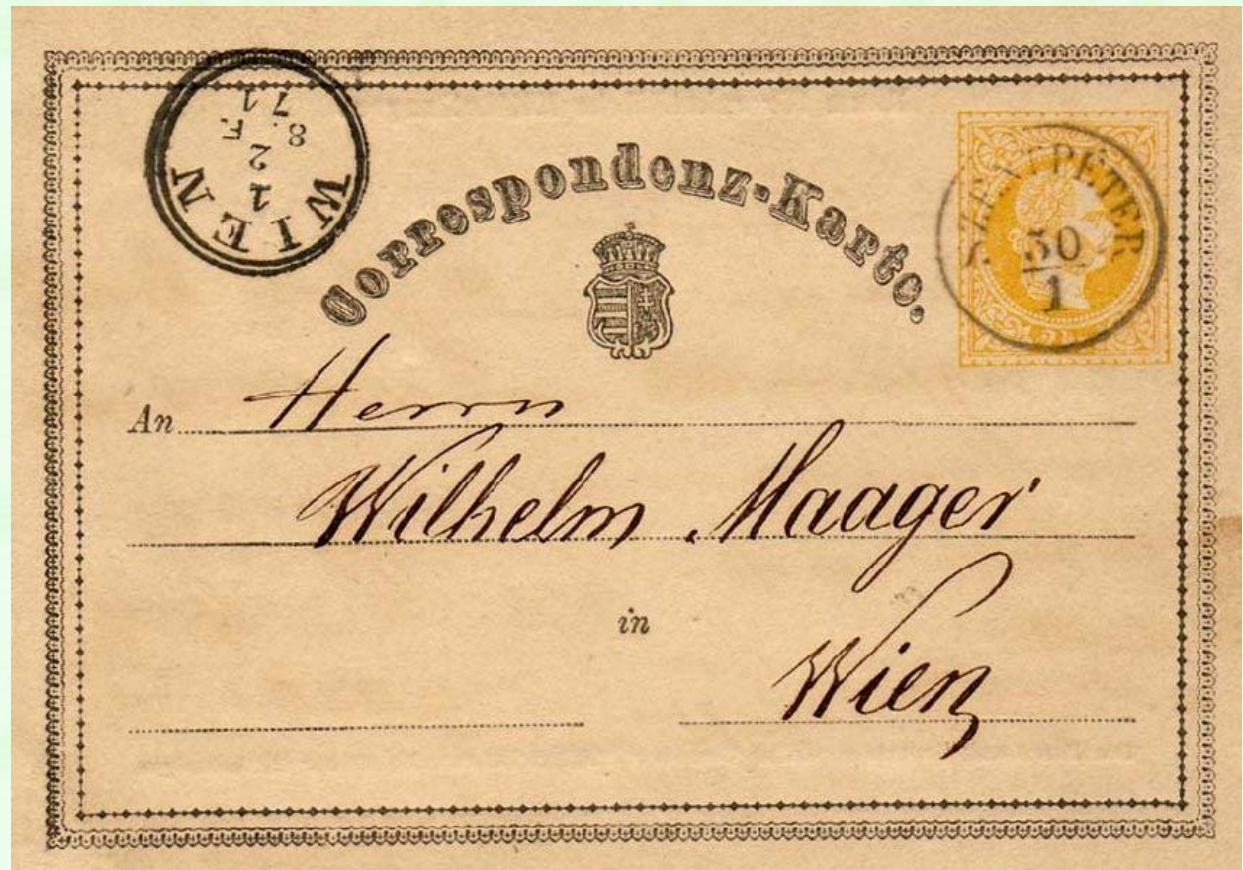 WIEN
1
2
8. F.
71
Correspondenz-Karte.
SZENTPÉTER
30
1
An Herrn
Wilhelm Maager
in
Wien